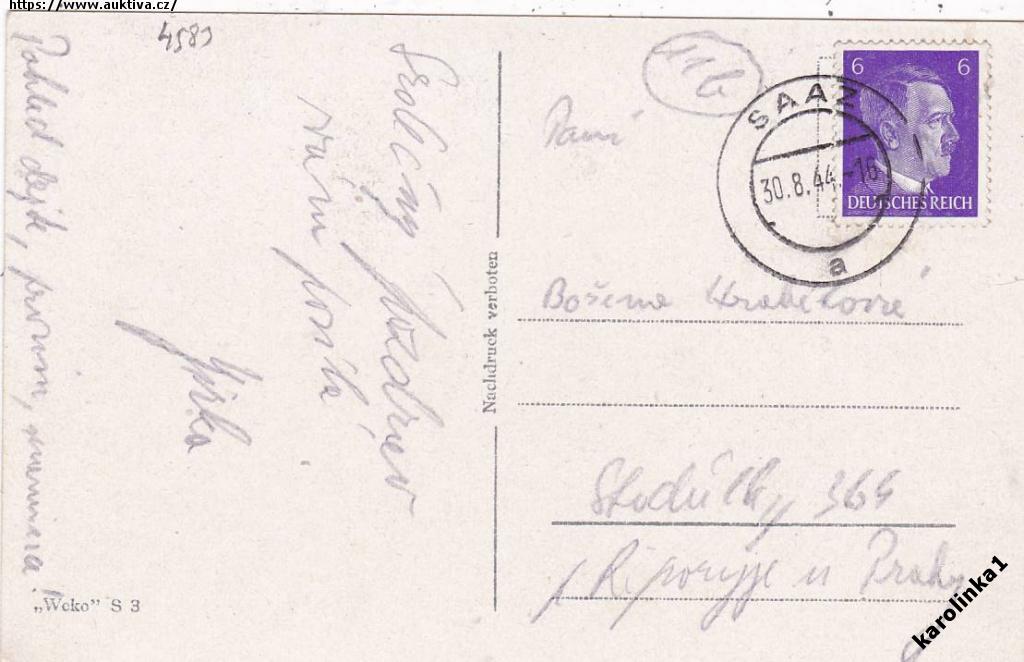 https://www.auktiva.cz/
4583
Pohled dejte, prosím,
Srdečný pozdrav
vám posílá
Jirka
„Weko” S 3
Nachdruck verboten
11b
6 6
DEUTSCHES REICH
SAAZ
30.8.44.-16
a
Paní
Božena
Stodůlky 364
p. Řiporyje u Prahy
karolinka1